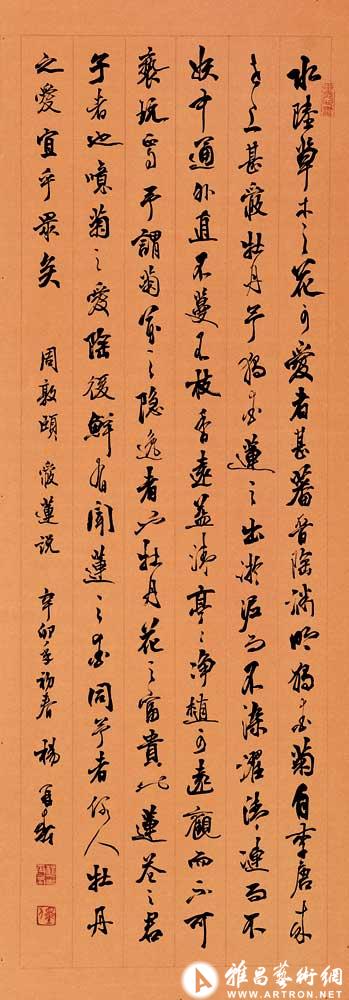 水陸草木之花可愛者甚蕃晉陶淵明獨愛菊自李唐來
世甚愛牡丹予獨愛蓮之出淤泥而不染濯清漣而不
妖中通外直不蔓不枝香遠益清亭〻淨植可遠觀而不可
褻玩焉予謂菊花之隱逸者也牡丹花之富貴也蓮花之君
子者也噫菊之愛陶後鮮有聞蓮之愛同予者何人牡丹
之愛宜乎眾矣 周敦頤 愛蓮說 辛卯年初春 楊
雅昌藝術網
WWW.ARTRON.NET